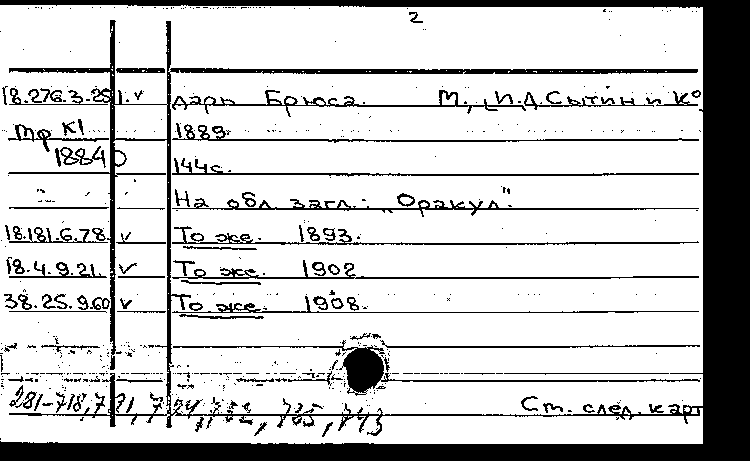 2
18.276.3.25 1. v дарь Брюса. М., [И.Д. Сытин и К⁰,
Мф К1 1889.
18840 144с.
На обл. загл.: „Оракул".
18.181.6.78. v То же. 1893.
18.4.9.21. v То же. 1902.
38.25.9.60 v То же. 1908.
281-718,721,724,732,735,743 Ст. след. карт